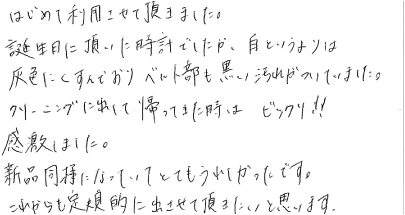 はじめて利用させて頂きました。
誕生日に頂いた時計でしたが、白というよりは
灰色にくすんでおりベルト部も黒い汚れがついていました。
クリーニングに出して帰ってきた時は ビックリ!!
感激しました。
新品同様になっていてとてもうれしかったです。
これからも定期的に出させて頂きたいと思います。